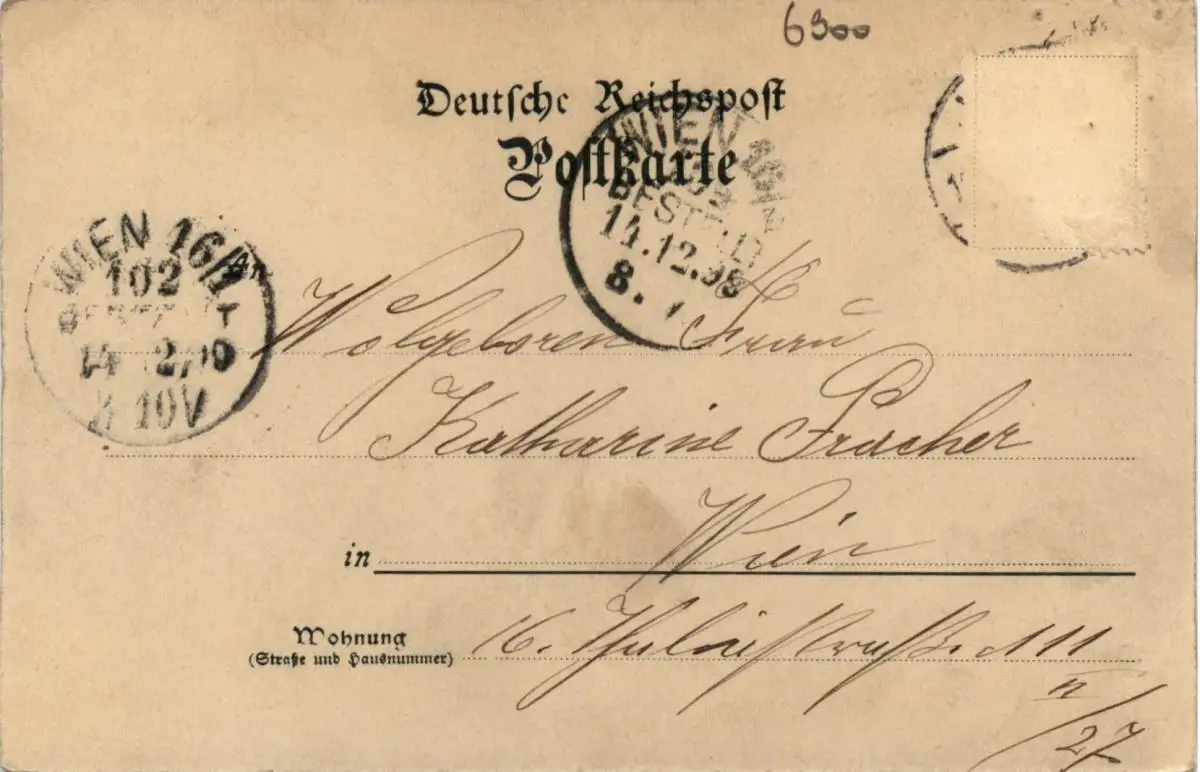 6900
Deutsche Reichspost
Postkarte
WIEN
BESTELLT
14.12.98
8.
WIEN 16/1
102
BESTELLT
8 10V
An
Wolgeboren Frau
Katharine Fracher
in Wien
Wohnung
(Straße und Hausnummer)
16. Thaliastraße 111
II/27